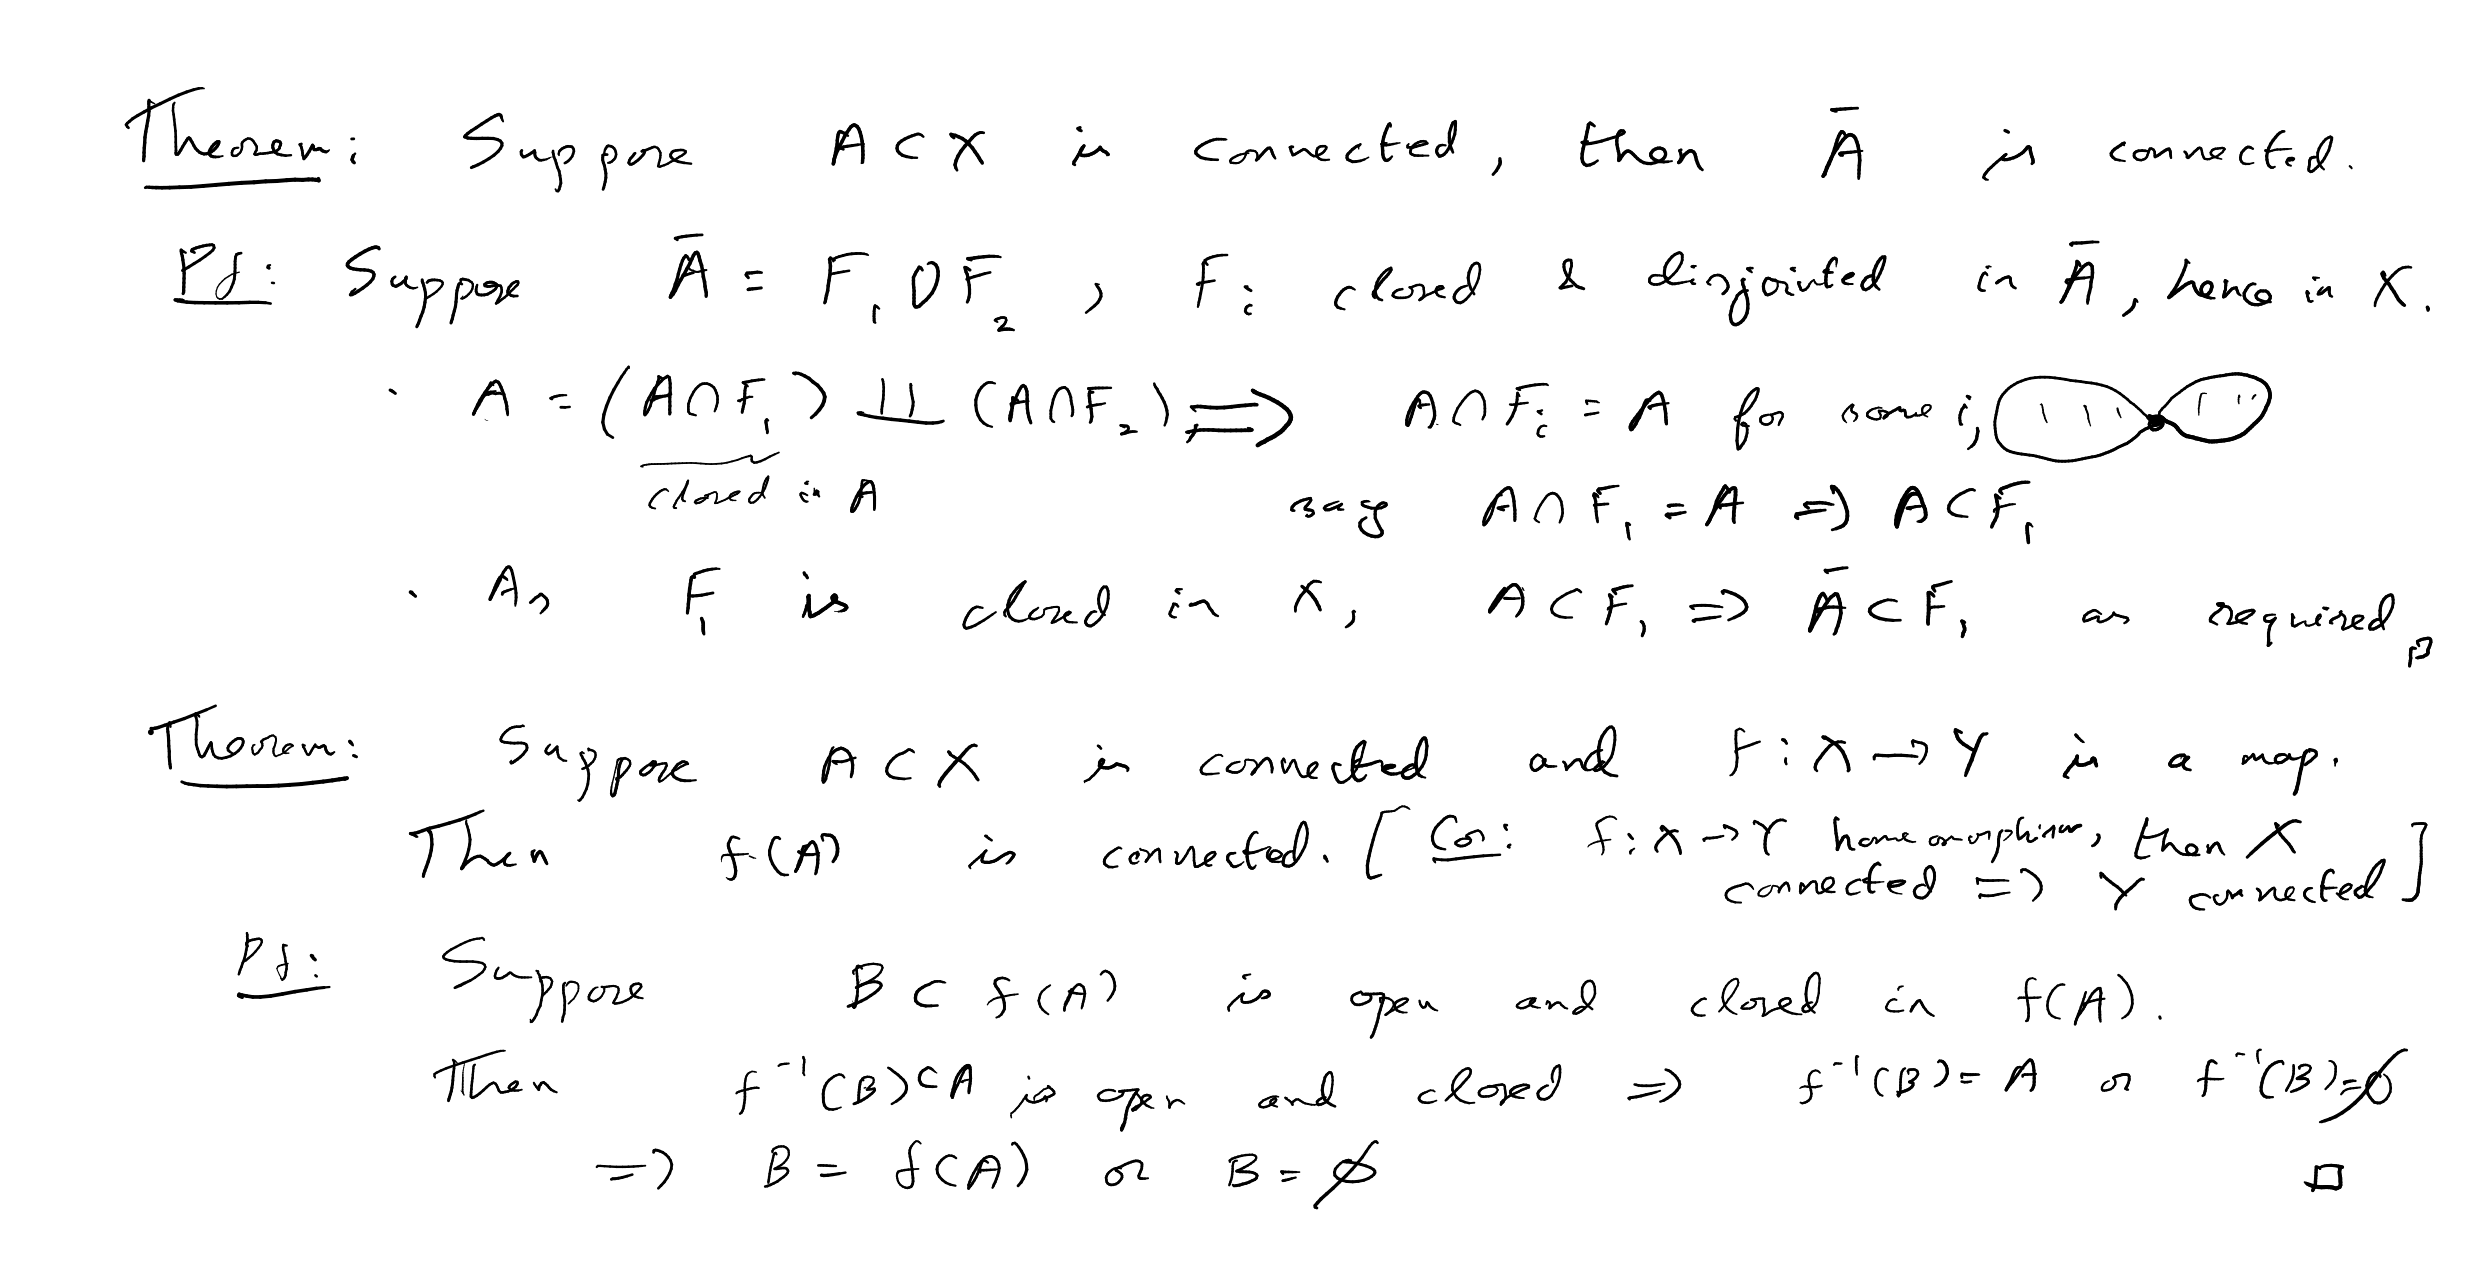 Theorem: Suppose A ⊂ X is connected, then Ā is connected.
Pf: Suppose Ā = F₁ ∪ F₂, Fᵢ closed & disjointed in Ā, hence in X.
· A = (A∩F₁) ⨿ (A∩F₂) ⟹ A∩Fᵢ = A for some i,
closed in A say A∩F₁ = A ⇒ A⊂F₁
· As F₁ is closed in X, A⊂F₁ ⇒ Ā⊂F₁ as required □
Theorem: Suppose A ⊂ X is connected and f: X → Y is a map.
Then f(A) is connected. [Cor: f: X → Y homeomorphism, then X
connected ⇒ Y connected]
Pf: Suppose B ⊂ f(A) is open and closed in f(A).
Then f⁻¹(B)⊂A is open and closed ⇒ f⁻¹(B) = A or f⁻¹(B)=∅
⇒ B = f(A) or B = ∅ □